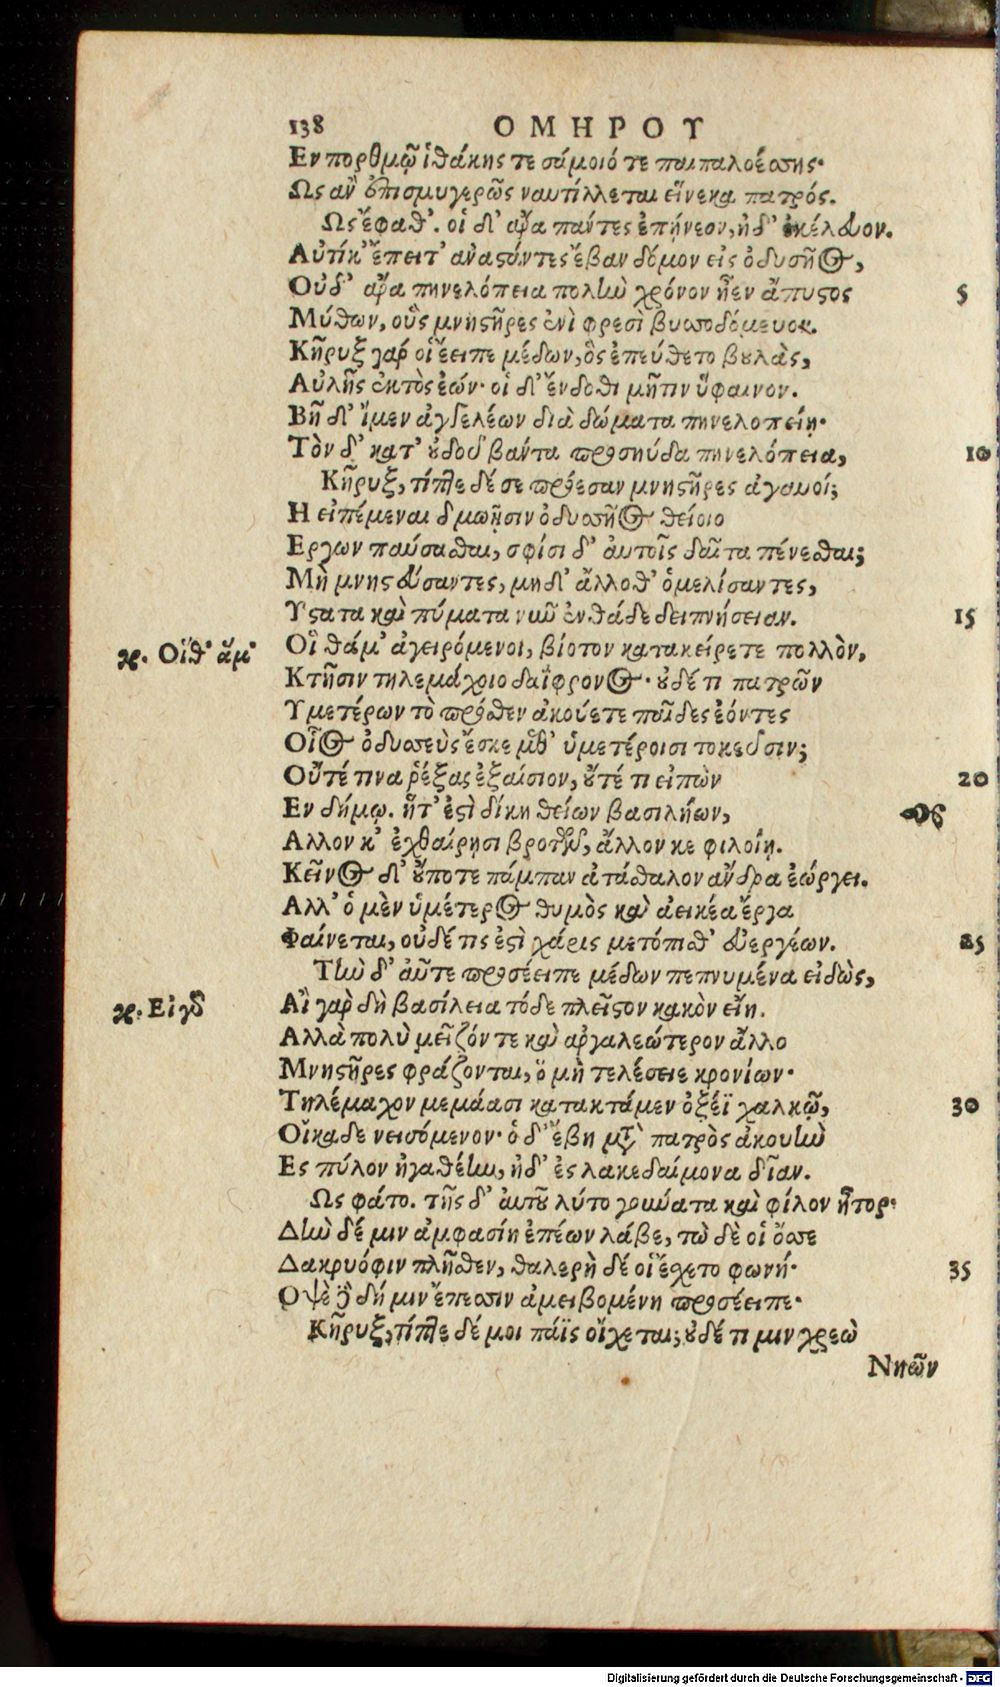 138 ΟΜΗΡΟΥ
Εν πορθμῷ ἰθάκης τε σάμοιό τε παιπαλοέσσης·
Ως ἂν ἐπισμυγερῶς ναυτίλλεται εἵνεκα πατρός.
Ως ἔφαθ'. οἱ δ' ἄρα πάντες ἐπῄνεον, ἠδ' ἐκέλευον.
Αὐτίκ' ἔπειτ' ἀναστάντες ἔβαν δόμον εἰς ὀδυσῆος,
Οὐδ' ἄρα πηνελόπεια πολὺν χρόνον ἦεν ἄπυστος 5
Μύθων, οὓς μνηστῆρες ἐνὶ φρεσὶ βυσσοδόμευον.
Κῆρυξ γάρ οἱ ἔειπε μέδων, ὃς ἐπεύθετο βουλὰς,
Αὐλῆς ἐκτὸς ἐών· οἱ δ' ἔνδοθι μῆτιν ὕφαινον.
Βῆ δ' ἴμεν ἀγγελέων διὰ δώματα πηνελοπείῃ·
Τὸν δὲ κατ' οὐδοῦ βάντα προσηύδα πηνελόπεια, 10
Κῆρυξ, τίπτε δέ σε πρόεσαν μνηστῆρες ἀγαυοί;
Η εἰπέμεναι δμωῇσιν ὀδυσσῆος θείοιο
Εργων παύσασθαι, σφίσι δ' αὐτοῖς δαῖτα πένεσθαι;
Μὴ μνηστεύσαντες, μηδ' ἄλλοθ' ὁμιλήσαντες,
Υστατα καὶ πύματα νῦν ἐνθάδε δειπνήσειαν. 15
γρ. Οἵθ' ἅμ'
Οἳ θάμ' ἀγειρόμενοι, βίοτον κατακείρετε πολλὸν,
Κτῆσιν τηλεμάχοιο δαΐφρονος· οὐδέ τι πατρῶν
Υμετέρων τὸ πρόσθεν ἀκούετε παῖδες ἐόντες
Οἷος ὀδυσσεὺς ἔσκε μεθ' ὑμετέροισι τοκεῦσιν;
Οὔτέ τινα ῥέξας ἐξαίσιον, οὔτέ τι εἰπὼν 20
Εν δήμῳ. ἥτ' ἐστὶ δίκη θείων βασιλήων,
Αλλον κ' ἐχθαίρησι βροτῶν, ἄλλον κε φιλοίη.
Κεῖνος δ' οὔποτε πάμπαν ἀτάσθαλον ἄνδρα ἐώργει.
Αλλ' ὁ μὲν ὑμέτερος θυμὸς καὶ ἀεικέα ἔργα
Φαίνεται, οὐδέ τις ἐστὶ χάρις μετόπισθ' εὐεργέων. 25
Τὴν δ' αὖτε προσέειπε μέδων πεπνυμένα εἰδὼς,
γρ. Εἰ γὰρ
Αἲ γὰρ δὴ βασίλεια τόδε πλεῖστον κακὸν εἴη.
Αλλὰ πολὺ μεῖζόν τε καὶ ἀργαλεώτερον ἄλλο
Μνηστῆρες φράζονται, ὃ μὴ τελέσειε κρονίων·
Τηλέμαχον μεμάασι κατακτάμεν ὀξέϊ χαλκῷ, 30
Οἴκαδε νεισόμενον· ὁ δ' ἔβη μετὰ πατρὸς ἀκουὴν
Ες πύλον ἠγαθέην, ἠδ' ἐς λακεδαίμονα δῖαν.
Ως φάτο. τῆς δ' αὐτοῦ λύτο γούνατα καὶ φίλον ἦτορ·
Δὴν δέ μιν ἀμφασίη ἐπέων λάβε, τὼ δὲ οἱ ὄσσε
Δακρυόφιν πλῆσθεν, θαλερὴ δέ οἱ ἔσχετο φωνή· 35
Οψὲ δὲ δή μιν ἔπεσσιν ἀμειβομένη προσέειπε·
Κῆρυξ, τίπτε δέ μοι πάϊς οἴχεται; οὐδέ τι μιν χρεὼ
Νηῶν
Digitalisierung gefördert durch die Deutsche Forschungsgemeinschaft - DFG